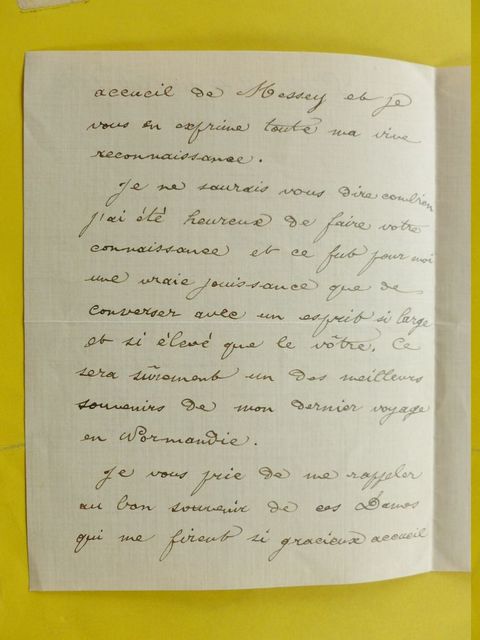 accueil de Messey et je
vous en exprime toute ma vive
reconnaissance.
Je ne saurais vous dire combien
j'ai été heureux de faire votre
connaissance et ce fut pour moi
une vraie jouissance que de
converser avec un esprit si large
et si élevé que le vôtre. Ce
sera sûrement un des meilleurs
souvenirs de mon dernier voyage
en Normandie.
Je vous prie de me rappeler
au bon souvenir de ces Dames
qui me firent si gracieux accueil